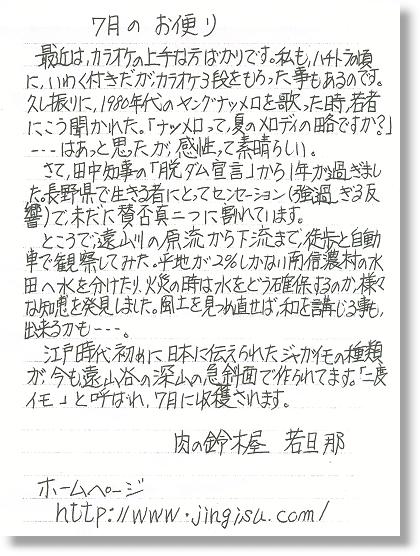 7月の お便り
最近は,カラオケの上手な方ばかりです。私も,ハチトラの頃
に,いわく付きだが,カラオケ3段をもらった事もあるのです。
久し振りに,1980年代のヤングナツメロを歌った時,若者
にこう聞かれた。「ナツメロって,夏のメロディの略ですか?」
---はあっと思ったが,感性って素晴らしい。
さて,田中知事の「脱ダム宣言」から1年が過ぎまし
た。長野県で生きる者にとってセンセーション(強過ぎる反
響)で,未だに賛否真二つに割れています。
ところで,遠山川の原流から下流まで,徒歩と自動
車で観察してみた。平地が2%しかない南信濃村の水
田へ水を分けたり,火災の時は水をどう確保するのか,様々
な知恵を発見しました。風土を見つめ直せば,和を講じる事も,
出来るかも---。
江戸時代初めに日本に伝えられたジャガイモの種類
が,今も遠山谷の深山の急斜面で作られてます。「二度
イモ」と呼ばれ,7月に収穫されます。
肉の鈴木屋 若旦那
ホームページ
http://www.jingisu.com/